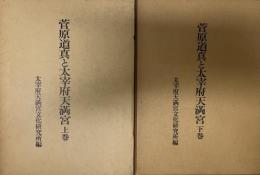 菅原道真と太宰府天満宮 上巻
太宰府天満宮文化研究所編
菅原道真と太宰府天満宮 下巻
太宰府天満宮文化研究所編